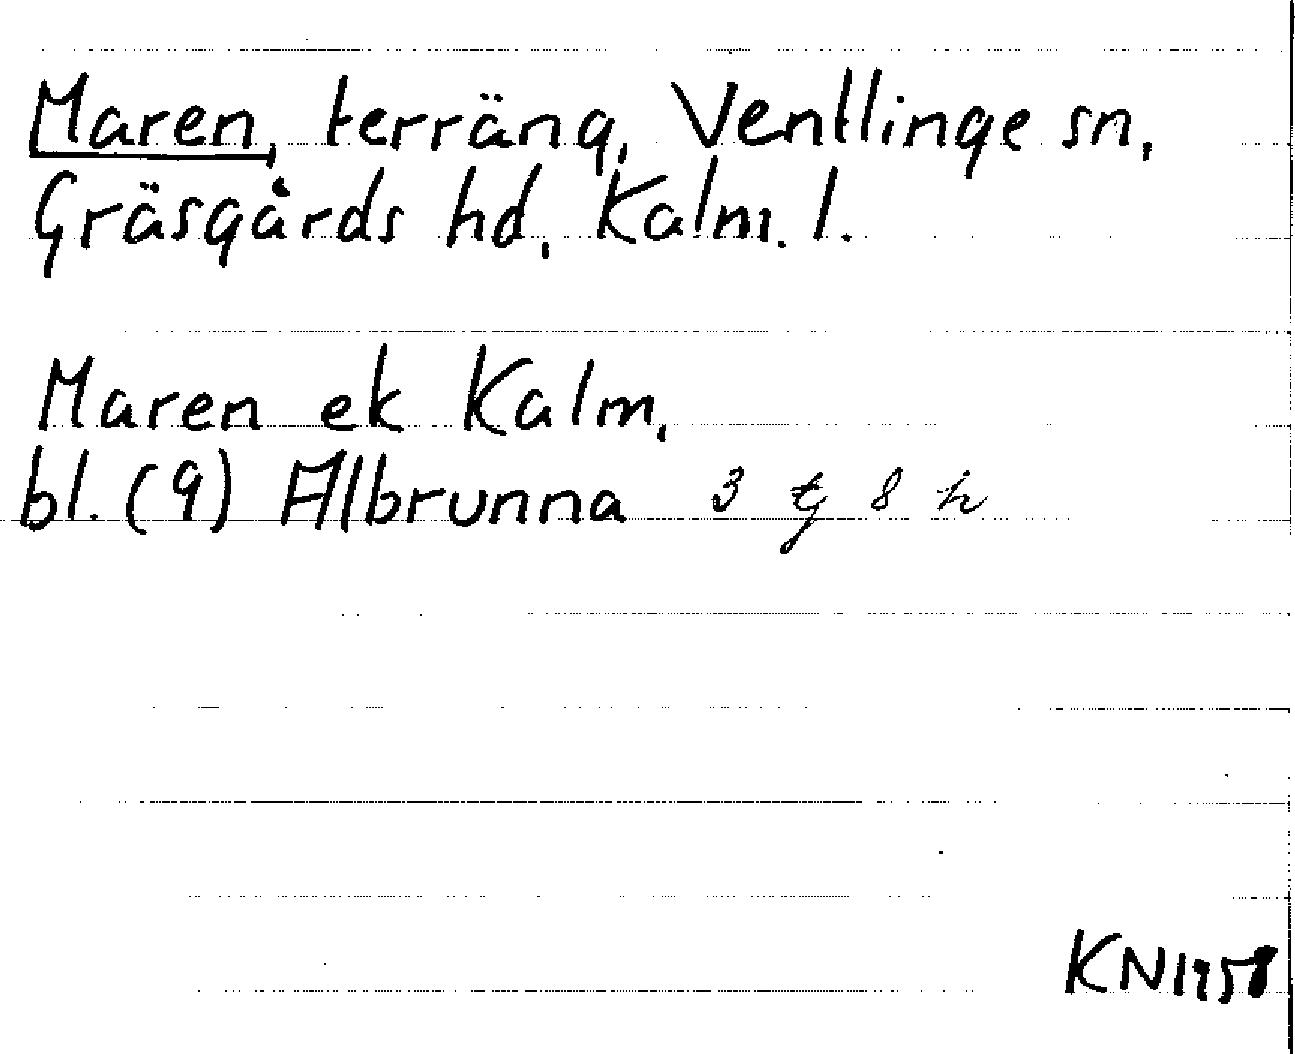 Maren, terräng, Ventlinge sn,
Gräsgårds hd, Kalm. l.
Maren ek Kalm,
bl. (9) Albrunna 3 g 8 h
KN1958